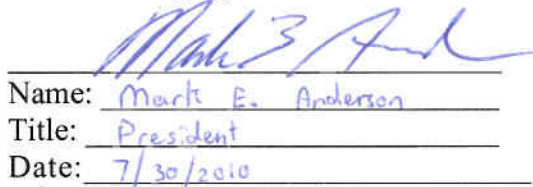 Mark E. And
Name: Mark E. Anderson
Title: President
Date: 7/30/2010